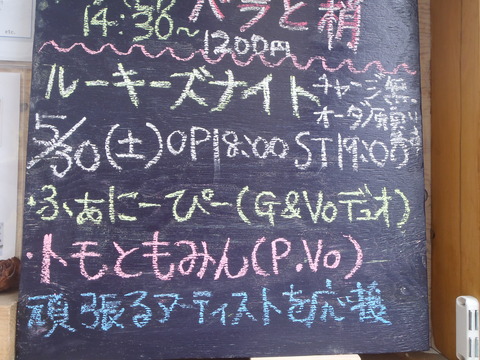 14:30~ バラと梢
1200円
ルーキーズナイト チャージ無
オーダー願います
5/30(土)OP18:00 ST19:00
・ふぁにーぴー(G&Voデュオ)
・トモともみん(P.Vo)
頑張るアーティストを応援